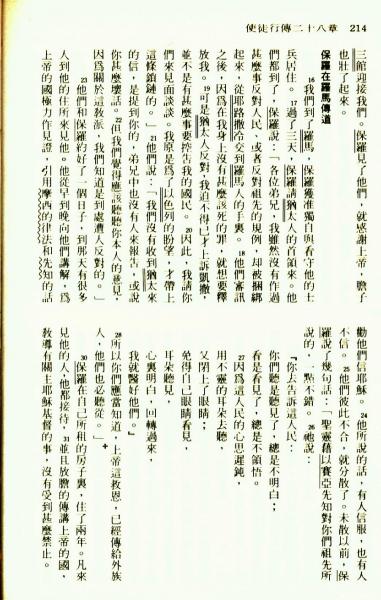 使徒行傳二十八章 214
三館迎接我們。保羅見了他們，就感謝上帝，膽子
也壯了起來。
保羅在羅馬傳道
16我們到了羅馬，保羅獲准獨自與看守他的士
兵居住。17過了三天，保羅請猶太人的首領來。他
們都到了，保羅說：「各位弟兄，我雖然沒有作過
甚麼事反對人民，或者反對祖先的規例，却被捆綁
起來，從耶路撒冷交到羅馬人的手裏。18他們審訊
之後，因爲在我身上沒有甚麼該死的罪，就想要釋
放我。19可是猶太人反對，我迫不得已才上訴凱撒，
並不是有甚麼事要控告我的國民。20因此，我請你
們來見面談談。我原是爲了以色列的盼望，才帶上
這條鎖鏈的。」21他們說：「我們沒有收到猶太來
的信，是提到你的，弟兄中也沒有人來報告，或說
你甚麼壞話。22但我們覺得應該聽聽你本人的意見，
因爲關於這敎派，我們知道是到處遭人反對的。」
23他們和保羅約好了一個日子，到那天有很多
人到他的住所來見他。他從早到晚向他們講解，爲
上帝的國極力作見證，引用摩西的律法和先知的話
勸他們信耶穌。24他所說的話，有人信服，也有人
不信。25他們彼此不合，就分散了。未散以前，保
羅說了幾句話：「聖靈藉以賽亞先知對你們祖先所
說的，一點不錯。26祂說：
『你去告訴這人民：
你們聽是聽見了，總是不明白；
看是看見了，總是不領悟。
27因爲這人民的心思遲鈍，
用不靈的耳朵去聽，
又閉上了眼睛；
免得自己眼睛看見，
耳朵聽見，
心裏明白，回轉過來，
我就醫好他們。』
28所以你們應當知道，上帝這救恩，已經傳給外族
人，他們也必聽從。」+
30保羅在自己所租的房子裏，住了兩年。凡來
見他的人，他都接待，31並且放膽的傳講上帝的國，
敎導有關主耶穌基督的事，沒有受到甚麼禁止。